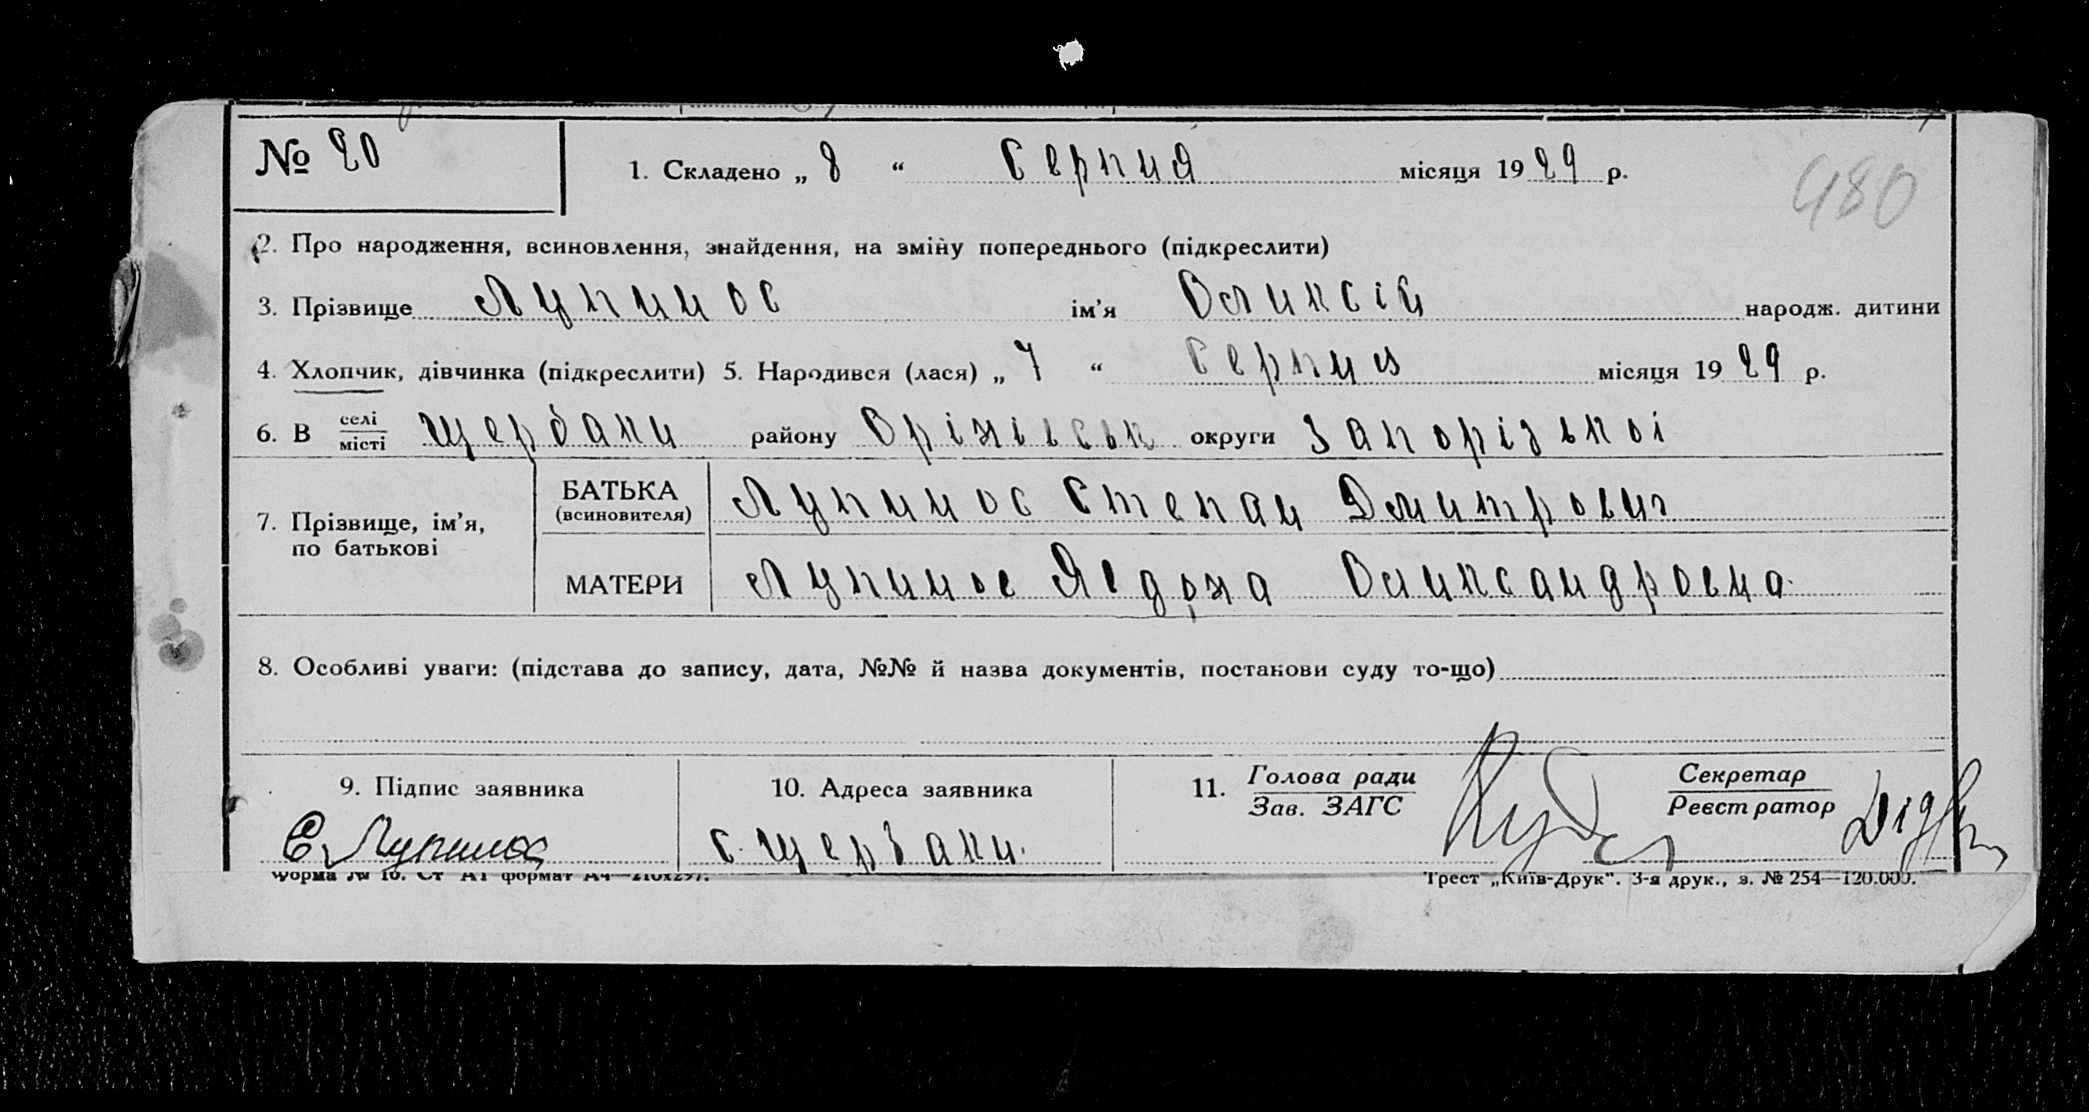 № 20
1. Складено „ 8 “ Серпня місяця 1929 р.
480
2. Про народження, всиновлення, знайдення, на зміну попереднього (підкреслити)
3. Прізвище Лупинос ім’я Оликсій народж. дитини
4. Хлопчик, дівчинка (підкреслити) 5. Народився (лася) „ 7 “ Серпня місяця 1929 р.
6. В селі/місті Щербаки району Оріхівськ округи Запорізькоі
7. Прізвище, ім’я, по батькові
БАТЬКА (всиновителя) Лупинос Степан Дмитрович
МАТЕРИ Лупинос Явдоха Оликсандровна
8. Особливі уваги: (підстава до запису, дата, №№ й назва документів, постанови суду то-що)
9. Підпис заявника
10. Адреса заявника
11. Голова ради/Зав. ЗАГС
Секретар/Реєстратор
С Лупинос
с. Щербаки.
Форма № 16. Ст А1 формат А4—210х297.
Трест „Київ-Друк“. 3-я друк., з. № 254—120.000.